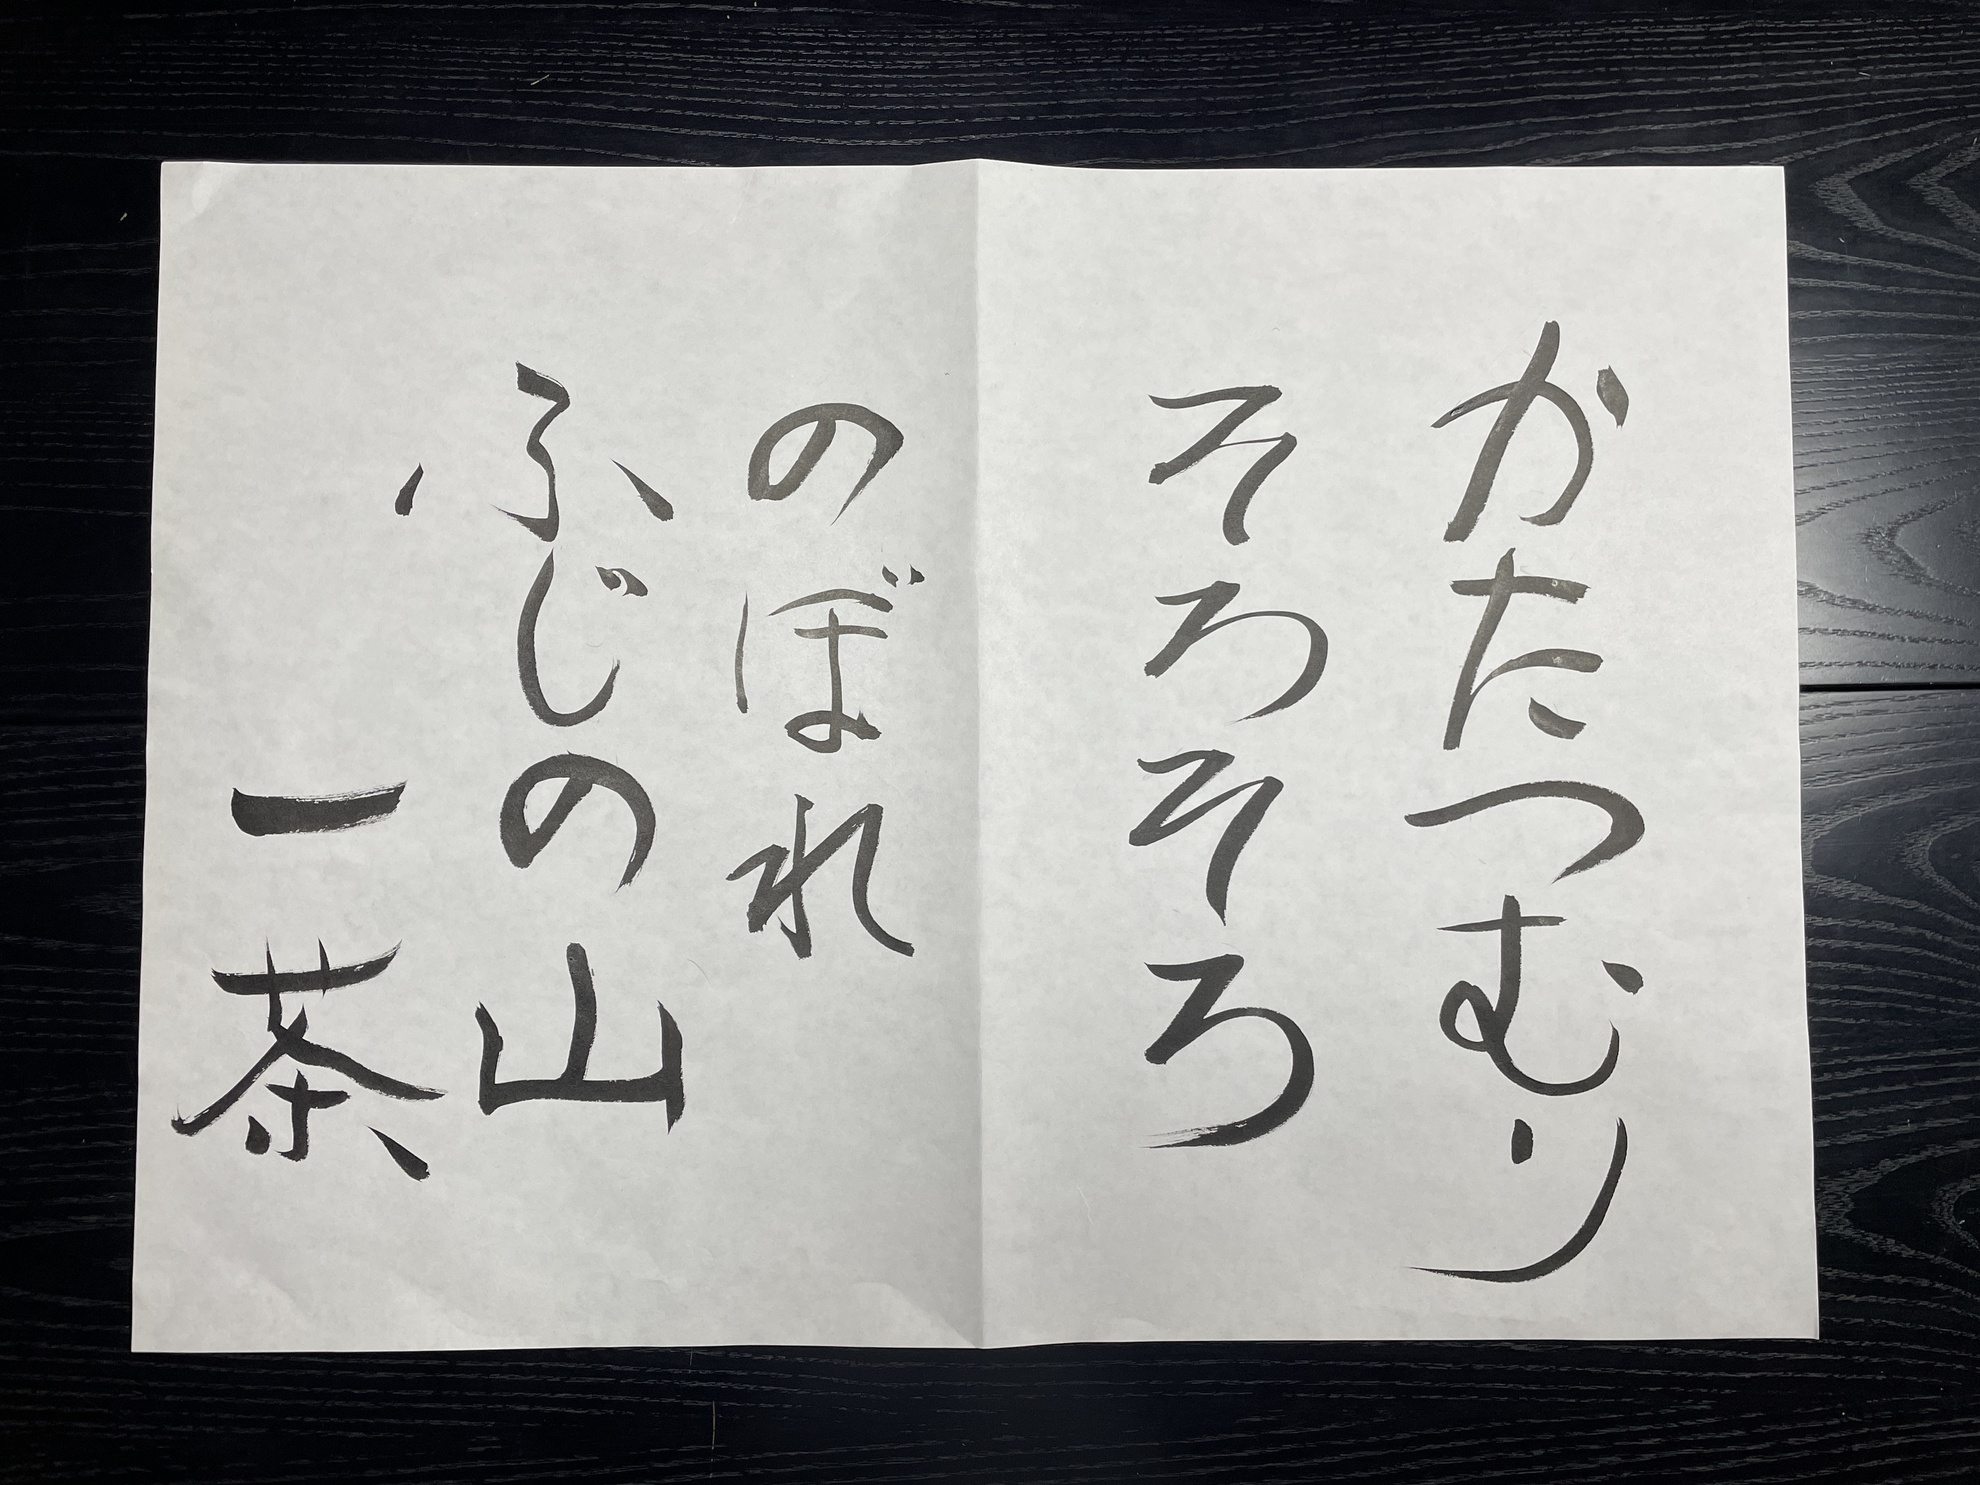 かたつむり
そろそろ
のぼれ
ふじの山
一茶